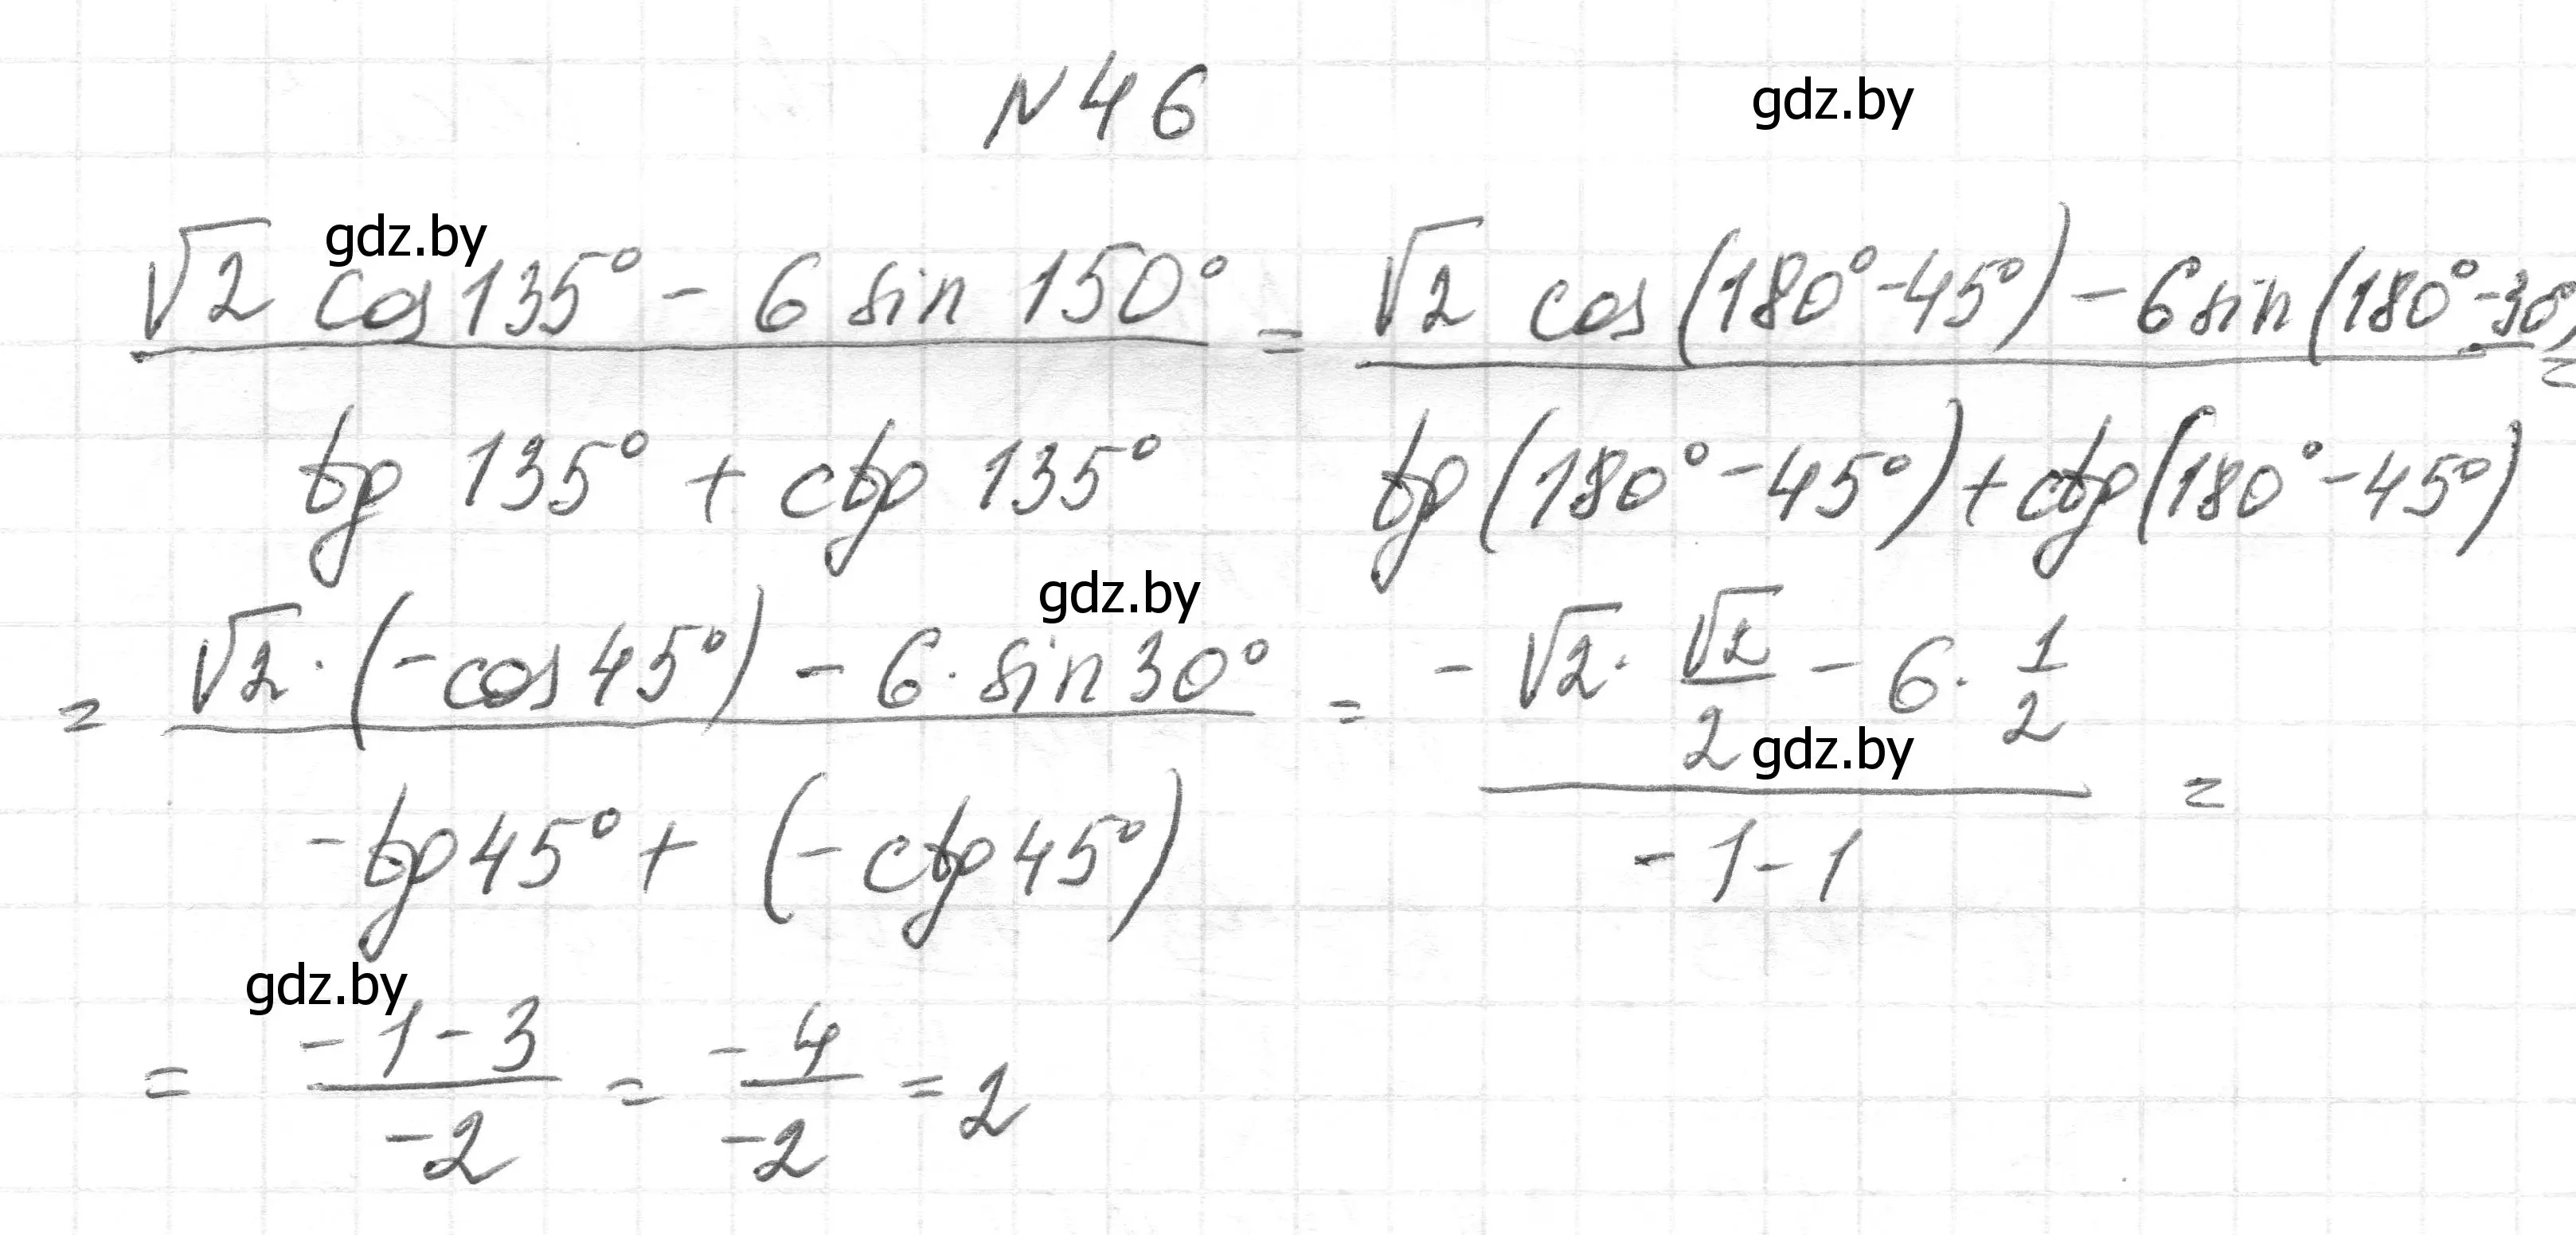 N46
gdz.by
gdz.by
√2 cos 135° - 6 sin 150° / tg 135° + ctg 135° = √2 cos(180° - 45°) - 6 sin(180° - 30°) / tg(180° - 45°) + ctg(180° - 45°) =
gdz.by
= √2 · (-cos 45°) - 6 · sin 30° / -tg 45° + (-ctg 45°) = -√2 · √2/2 - 6 · 1/2 / -1 - 1 =
gdz.by
gdz.by
= -1 - 3 / -2 = -4 / -2 = 2